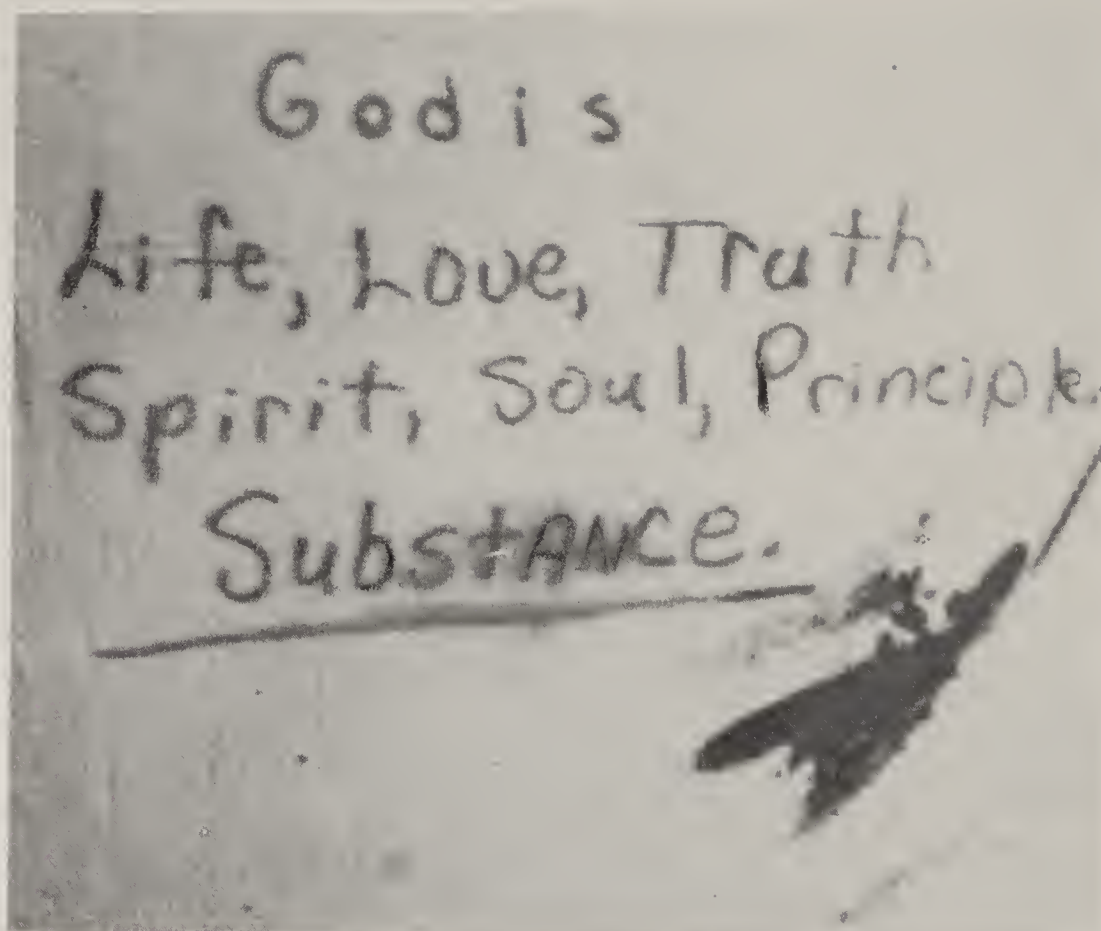 God is
Life, Love, Truth
Spirit, Soul, Principle.
SubstANCe.